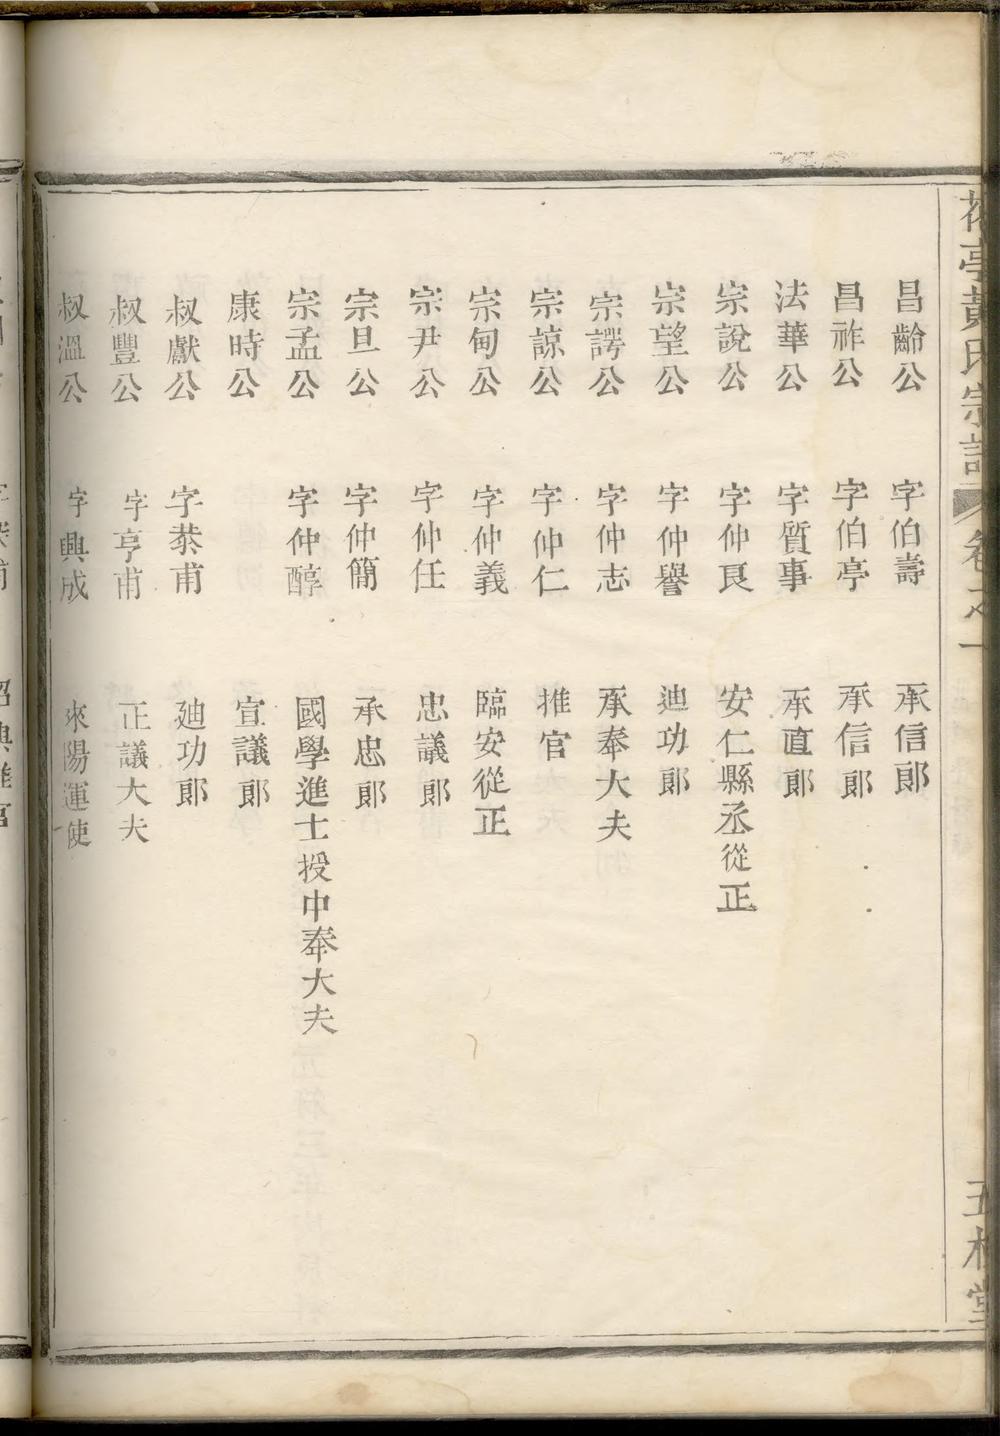 亭黃氏宗譜 卷之一
昌齡公 字伯壽 承信郎
昌祚公 字伯亭 承信郎
法華公 字質事 承直郎
宗說公 字仲良 安仁縣丞從正
宗望公 字仲譽 迪功郎
宗諤公 字仲志 承奉大夫
宗諒公 字仲仁 推官
宗甸公 字仲義 臨安從正
宗尹公 字仲任 忠議郎
宗旦公 字仲簡 承忠郎
宗孟公 字仲醇 國學進士授中奉大夫
康時公 宣議郎
叔獻公 字恭甫 廸功郎
叔豐公 字亨甫 正議大夫
叔溫公 字興成 來陽運使